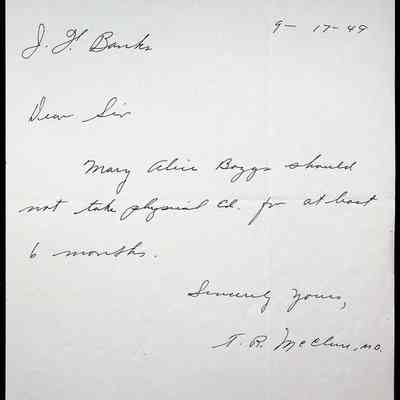 9-17-49
J. H. Banks
Dear Sir
Mary Alice Boggs should
not take physical Ed. for at least
6 months.
Sincerely Yours,
T. R. McClure, M.D.